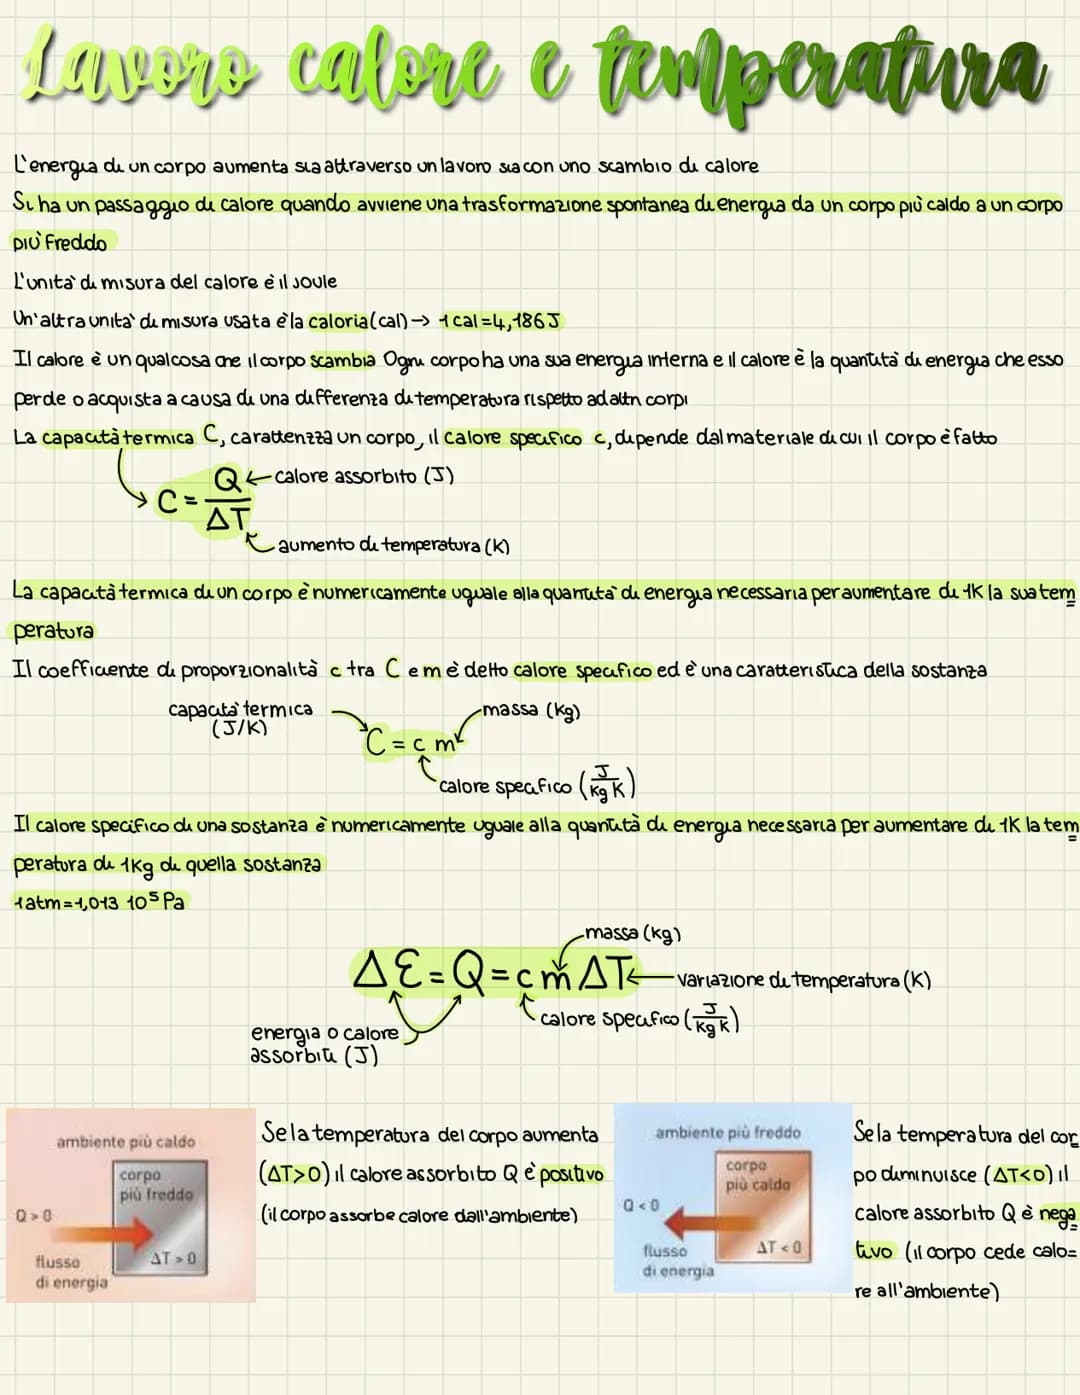 Lavoro calore e temperatura
L'energia di un corpo aumenta sia attraverso un lavoro sia con uno scambio di calore
Si ha un passaggio di calore quando avviene una trasformazione spontanea di energia da un corpo più caldo a un corpo
più freddo
L'unità di misura del calore è il Joule
Un'altra unità di misura usata è la caloria (cal) → 1 cal = 4,186 J
Il calore è un qualcosa che il corpo scambia Ogni corpo ha una sua energia interna e il calore è la quantità di energia che esso
perde o acquista a causa di una differenza di temperatura rispetto ad altri corpi
La capacità termica C, caratterizza un corpo, il calore specifico c, dipende dal materiale di cui il corpo è fatto
C = Q/ΔT
calore assorbito (J)
aumento di temperatura (K)
La capacità termica di un corpo è numericamente uguale alla quantità di energia necessaria per aumentare di 1K la sua tem
peratura
Il coefficiente di proporzionalità c tra C e m è detto calore specifico ed è una caratteristica della sostanza
capacità termica
(J/K)
massa (kg)
C = c m
calore specifico (J/kg K)
Il calore specifico di una sostanza è numericamente uguale alla quantità di energia necessaria per aumentare di 1K la tem
peratura di 1Kg di quella sostanza
1 atm = 1,013 10⁵ Pa
massa (kg)
ΔE = Q = c m ΔT
variazione di temperatura (K)
calore specifico (J/kg K)
energia o calore
assorbiti (J)
ambiente più caldo
corpo
più freddo
Q > 0
ΔT > 0
flusso
di energia
Se la temperatura del corpo aumenta
(ΔT>0) il calore assorbito Q è positivo
(il corpo assorbe calore dall'ambiente)
ambiente più freddo
corpo
più caldo
Q < 0
ΔT < 0
flusso
di energia
Se la temperatura del cor
po diminuisce (ΔT<0) il
calore assorbito Q è nega
tivo (il corpo cede calo=
re all'ambiente)